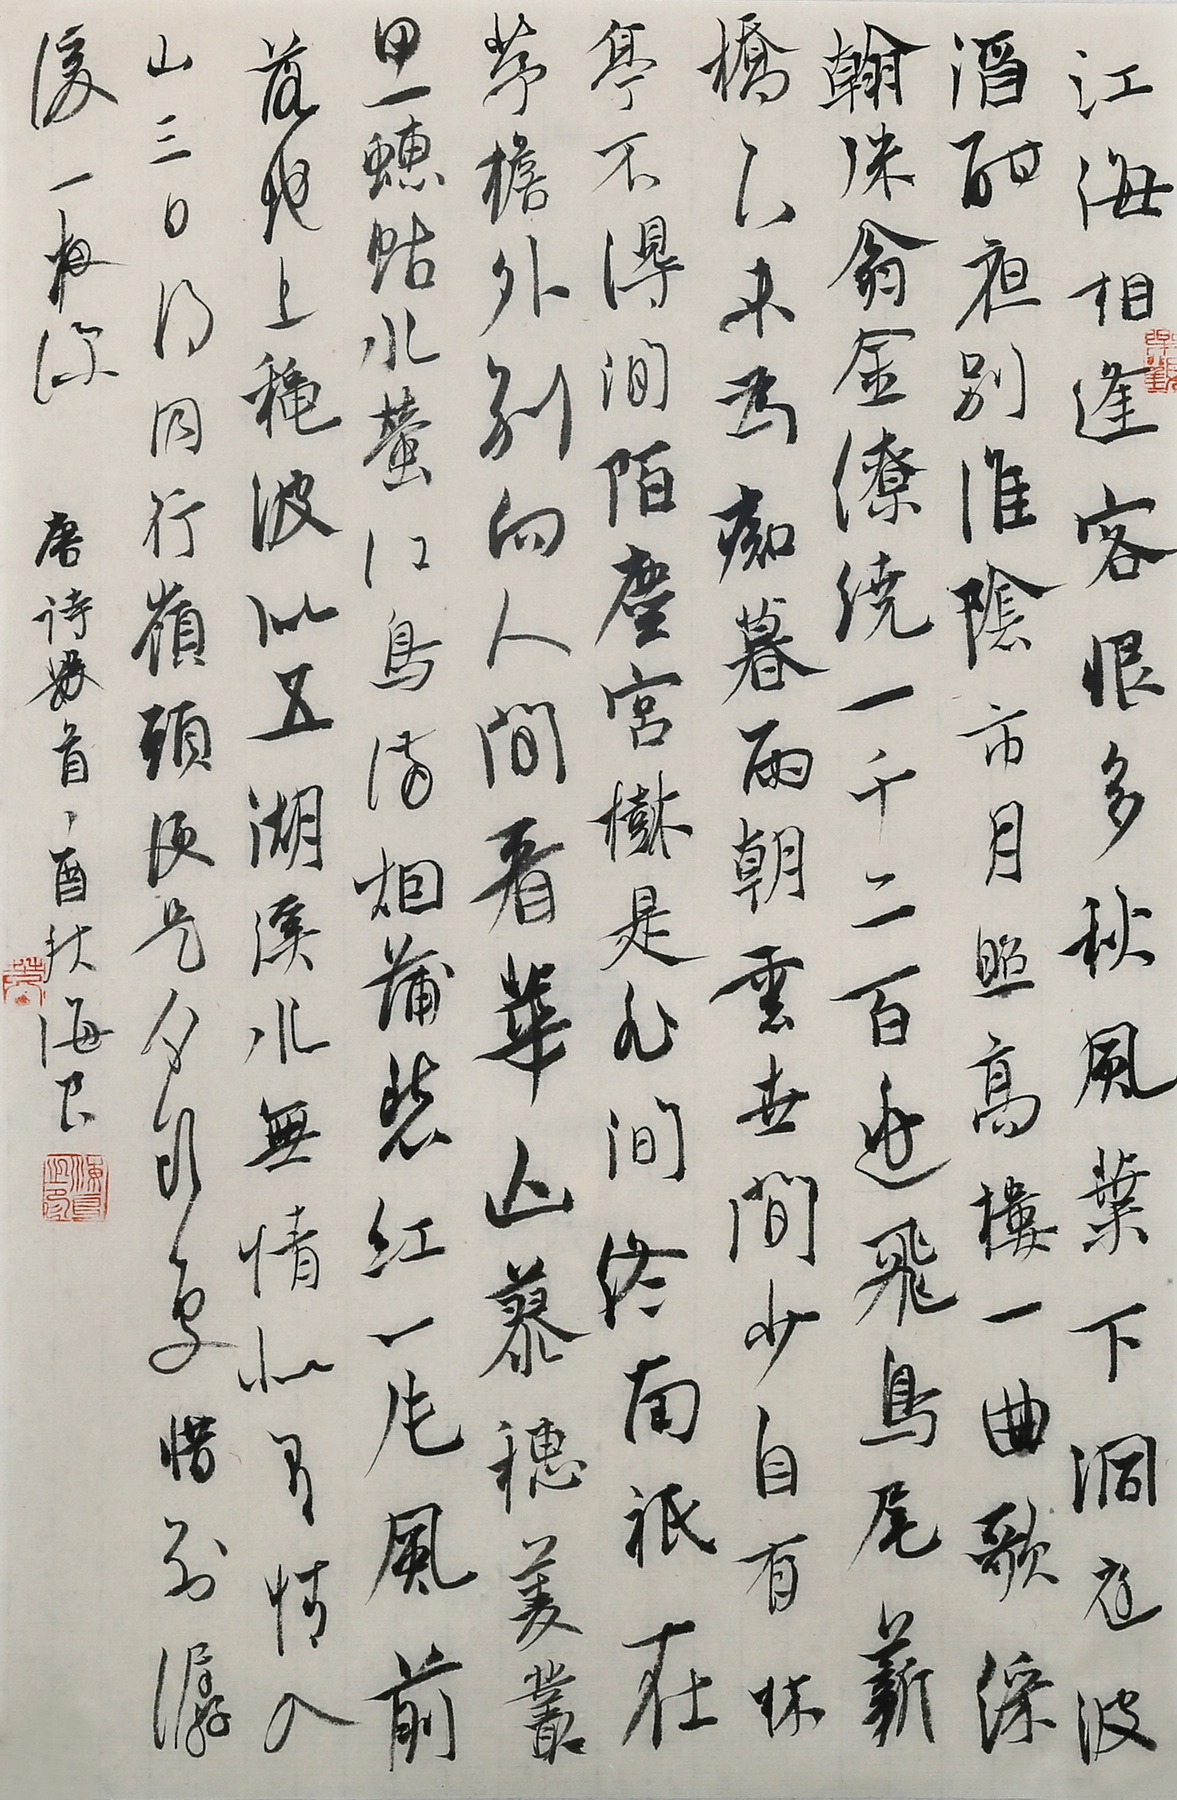 江海相逢客恨多秋風葉下洞庭波
酒酣夜別淮陰市月照高樓一曲歌綵
翰殊翁金繚繞一千二百逃飛鳥尾薪
橋下未為痴暮雨朝雲世間少自有林
亭不得閒陌塵宮樹是非間終南祇在
茅檐外別向人間看華山蓼穗菱叢
思蟪蛄水螢江鳥滿烟蒲愁紅一片風前
落池上穐波似五湖溪水無情似有情入
山三日得同行嶺頭便是分頭處惜別潺
湲一夜深
唐詩數首丁酉秋海良